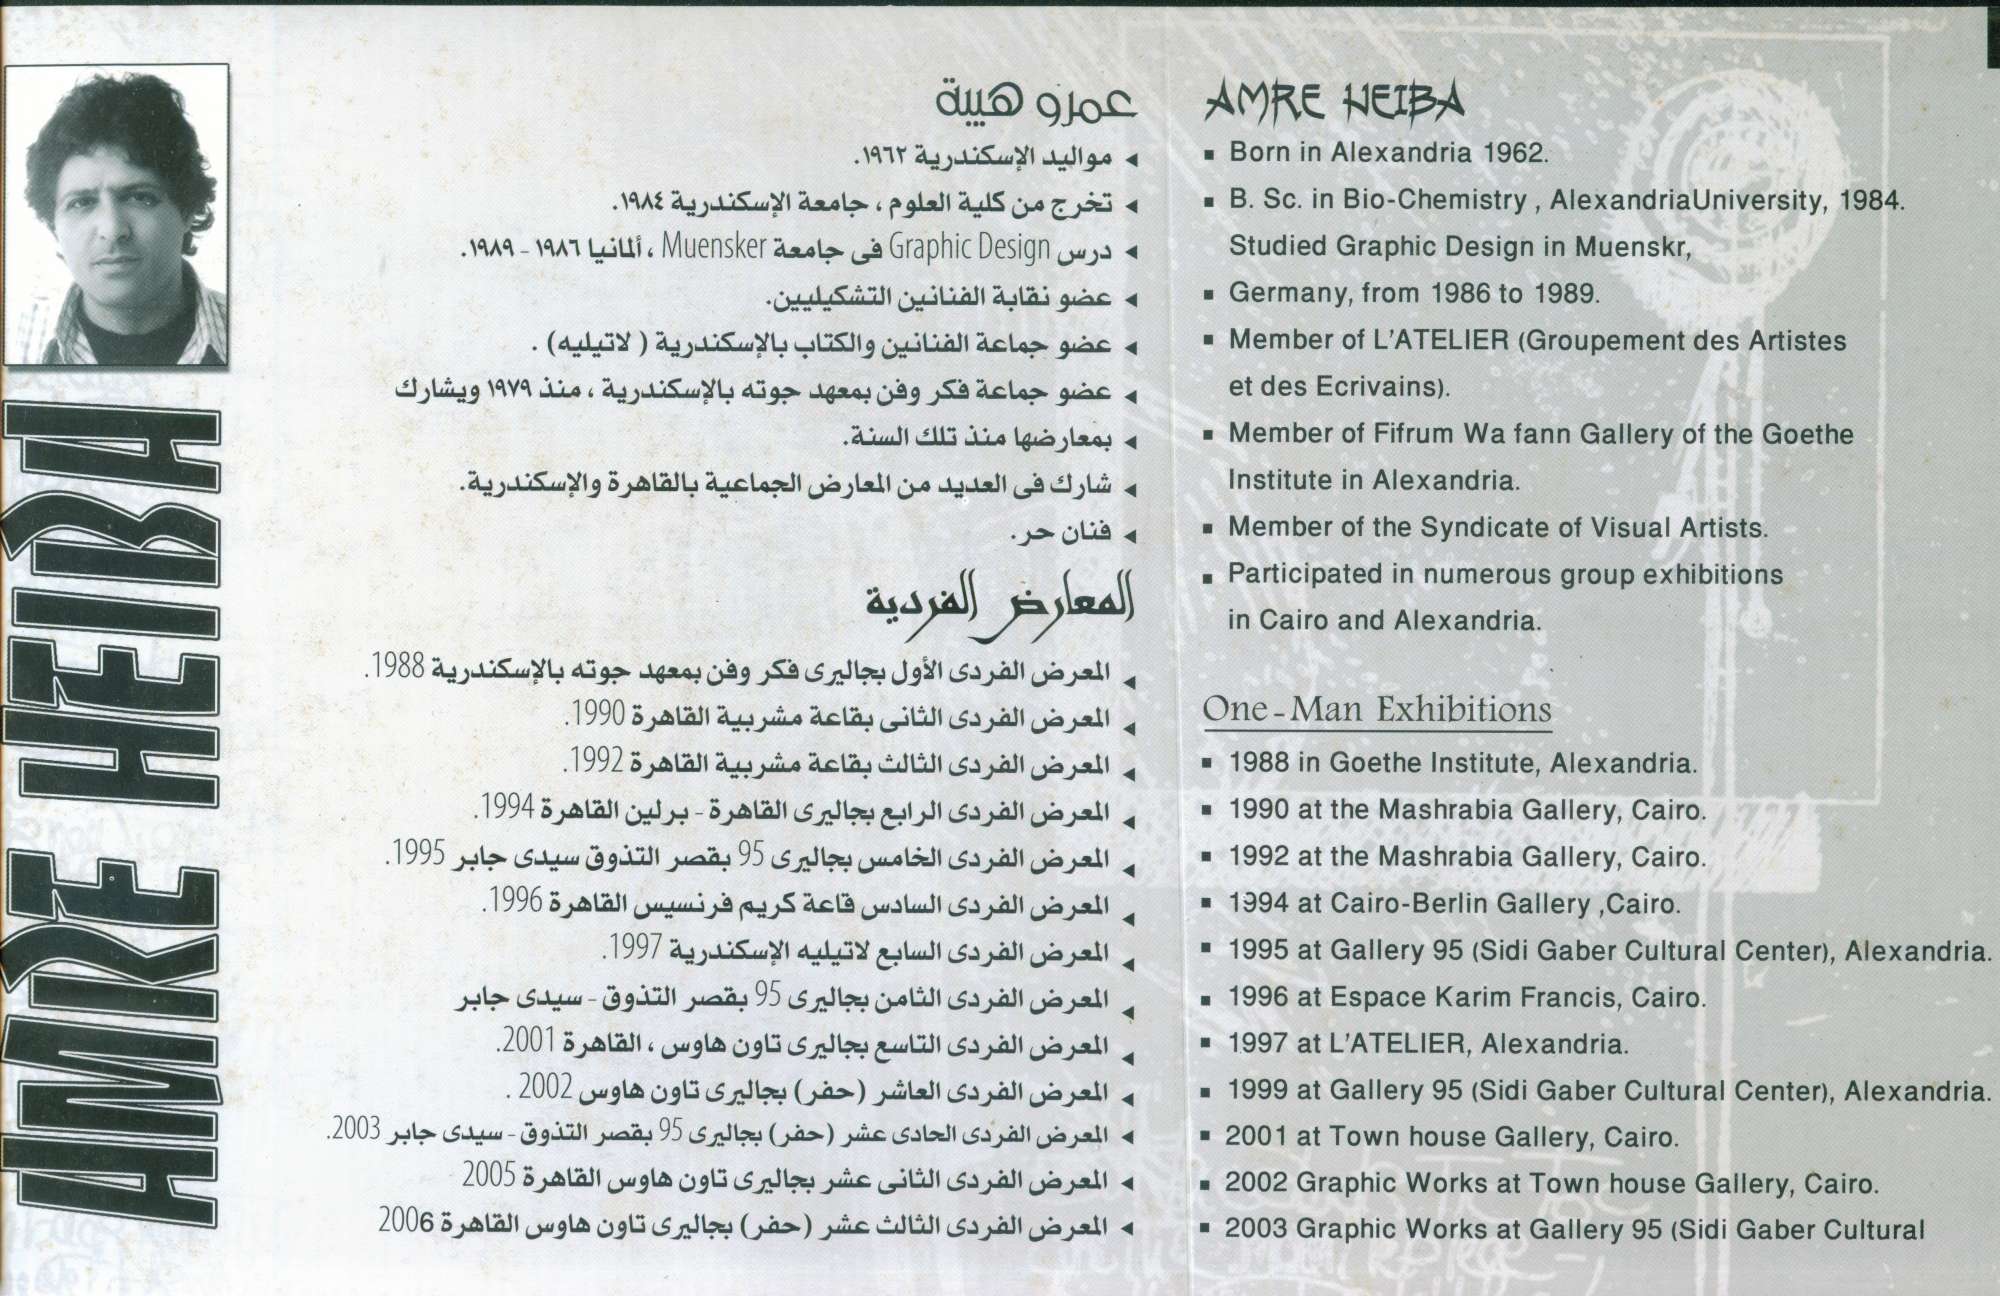 AMRE HEIBA
عمرو هيبة
مواليد الإسكندرية ١٩٦٢.
تخرج من كلية العلوم ، جامعة الإسكندرية ١٩٨٤.
درس Graphic Design فى جامعة Muensker ، ألمانيا ١٩٨٦ - ١٩٨٩.
عضو نقابة الفنانين التشكيليين.
عضو جماعة الفنانين والكتاب بالإسكندرية ( لاتيليه) .
عضو جماعة فكر وفن بمعهد جوته بالإسكندرية ، منذ ١٩٧٩ ويشارك
بمعارضها منذ تلك السنة.
شارك فى العديد من المعارض الجماعية بالقاهرة والإسكندرية.
فنان حر.
المعارض الفردية
المعرض الفردى الأول بجاليرى فكر وفن بمعهد جوته بالإسكندرية 1988.
المعرض الفردى الثانى بقاعة مشربية القاهرة 1990.
المعرض الفردى الثالث بقاعة مشربية القاهرة 1992.
المعرض الفردى الرابع بجاليرى القاهرة - برلين القاهرة 1994.
المعرض الفردى الخامس بجاليرى 95 بقصر التذوق سيدى جابر 1995.
المعرض الفردى السادس قاعة كريم فرنسيس القاهرة 1996.
المعرض الفردى السابع لاتيليه الإسكندرية 1997.
المعرض الفردى الثامن بجاليرى 95 بقصر التذوق - سيدى جابر
المعرض الفردى التاسع بجاليرى تاون هاوس ، القاهرة 2001.
المعرض الفردى العاشر (حفر) بجاليرى تاون هاوس 2002 .
المعرض الفردى الحادى عشر (حفر) بجاليرى 95 بقصر التذوق - سيدى جابر 2003.
المعرض الفردى الثانى عشر بجاليرى تاون هاوس القاهرة 2005
المعرض الفردى الثالث عشر (حفر) بجاليرى تاون هاوس القاهرة 2006
AMRE HEIBA
Born in Alexandria 1962.
B. Sc. in Bio-Chemistry , AlexandriaUniversity, 1984.
Studied Graphic Design in Muenskr,
Germany, from 1986 to 1989.
Member of L'ATELIER (Groupement des Artistes
et des Ecrivains).
Member of Fifrum Wa fann Gallery of the Goethe
Institute in Alexandria.
Member of the Syndicate of Visual Artists.
Participated in numerous group exhibitions
in Cairo and Alexandria.
One-Man Exhibitions
1988 in Goethe Institute, Alexandria.
1990 at the Mashrabia Gallery, Cairo.
1992 at the Mashrabia Gallery, Cairo.
1994 at Cairo-Berlin Gallery ,Cairo.
1995 at Gallery 95 (Sidi Gaber Cultural Center), Alexandria.
1996 at Espace Karim Francis, Cairo.
1997 at L'ATELIER, Alexandria.
1999 at Gallery 95 (Sidi Gaber Cultural Center), Alexandria.
2001 at Town house Gallery, Cairo.
2002 Graphic Works at Town house Gallery, Cairo.
2003 Graphic Works at Gallery 95 (Sidi Gaber Cultural